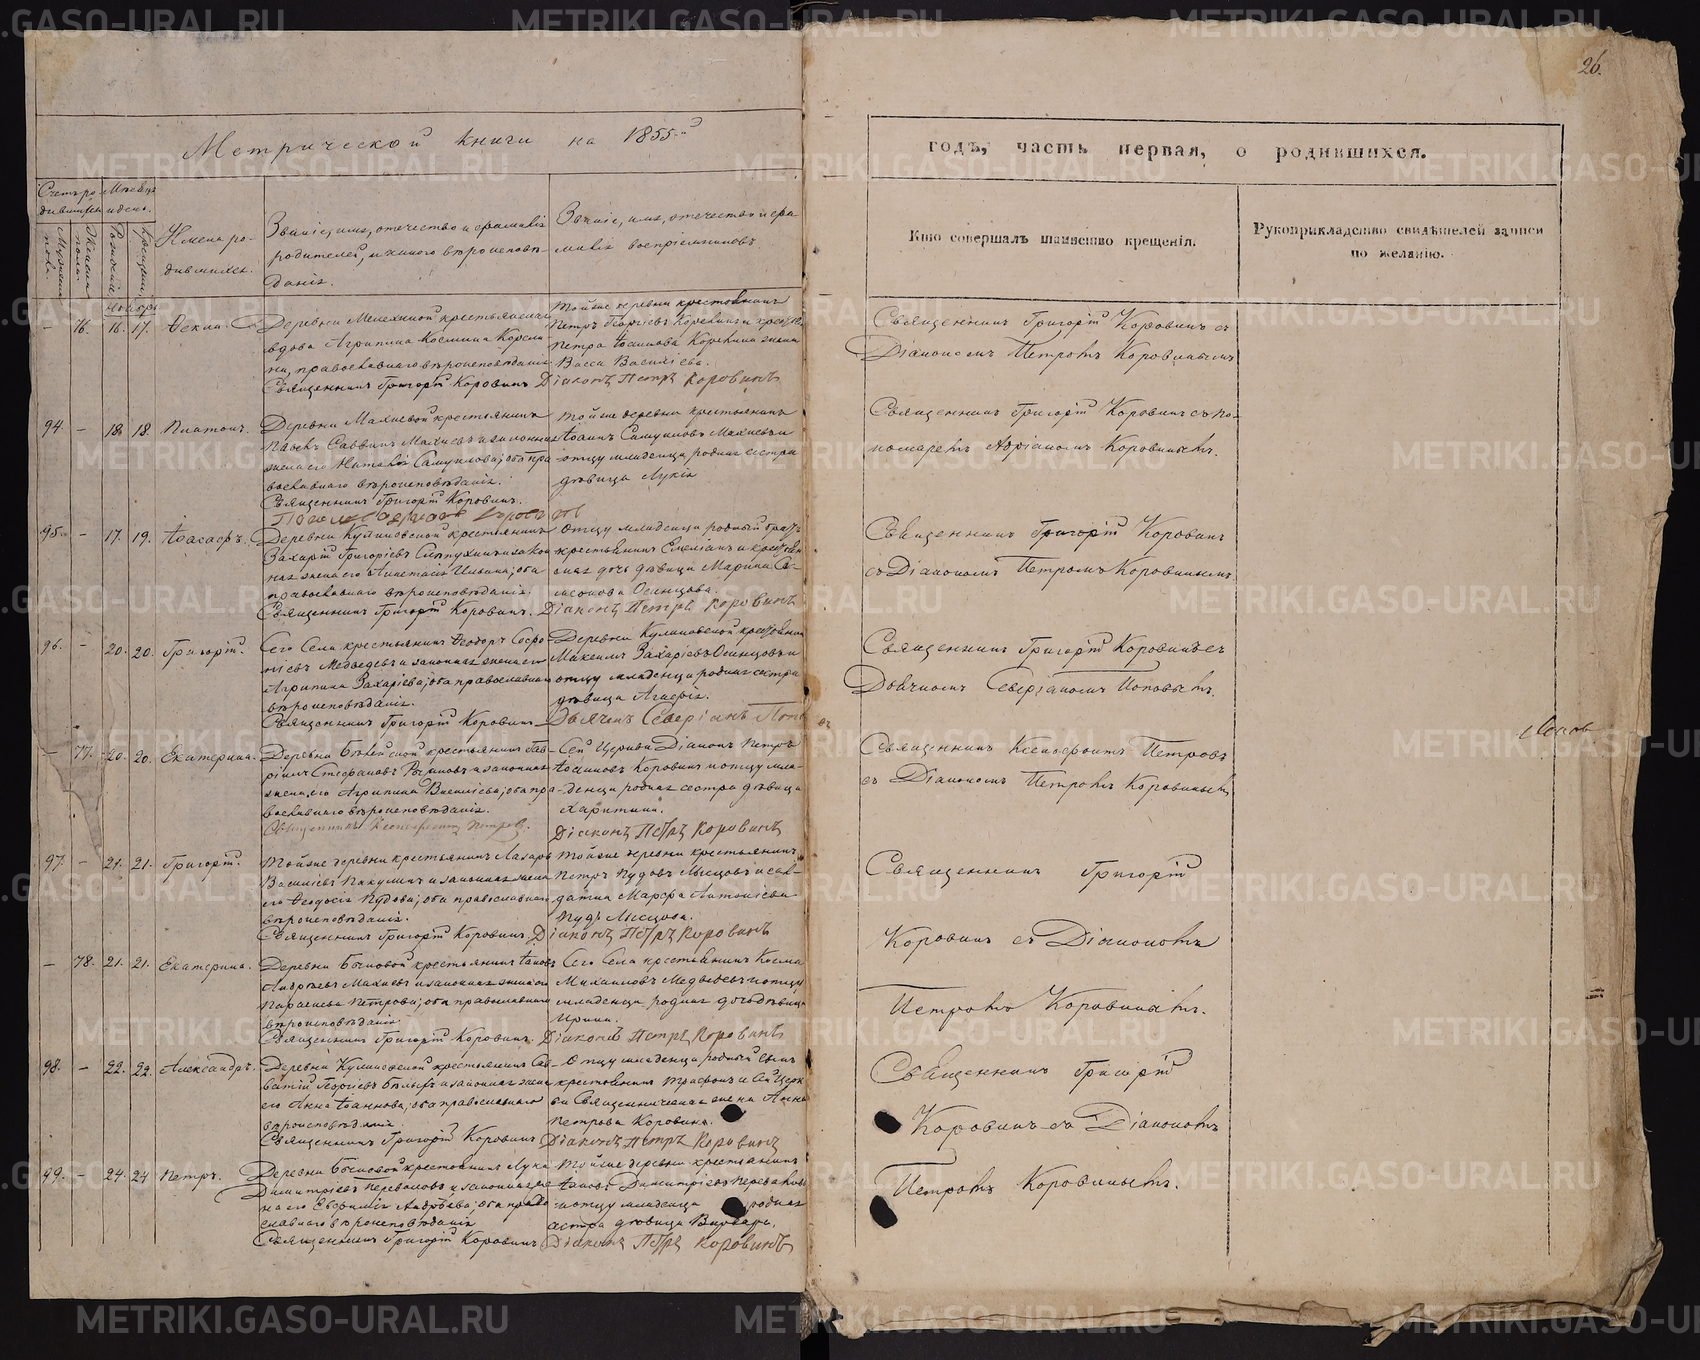 26.
Метрической книги на 1855-й
годъ, часть первая, о родившихся.
Счетъ ро-
дившихся
Мѣсяцъ
и день.
Мужеска
пола.
Женска
пола.
Рожденія
Крещенія
Имена ро-
дившихся.
Званіе, имя, отечество и фамилія
родителей, и какого вѣроисповѣ-
данія.
Званіе, имя, отечество и фа-
милія воспріемниковъ.
Кто совершалъ таинство крещенія.
Рукоприкладство свидѣтелей записи
по желанію.
Ноябрь
- 76. 16. 17. Ѳекла.
Деревни крестьянская
вдова Агрипина Космина
православнаго вѣроисповѣданія
Священникъ Григорій Коровинъ
Тойже деревни крестьянинъ
Петръ Георгіевъ и
Петра жена
Васса Василіева.
Діаконъ Петръ Коровинъ
Священникъ Григорій Коровинъ съ
Діакономъ Петромъ Коровинымъ
94 - 18. 18. Платонъ.
Деревни Махневой крестьянинъ
Саввинъ Махневъ и законная
жена его Наталія Самуилова; оба пра-
вославнаго вѣроисповѣданія.
Священникъ Григорій Коровинъ.
Тойже деревни крестьянинъ
Іоаннъ Самуиловъ Махневъ и
отцу младенца родная сестра
дѣвица Лукія
Священникъ Григорій Коровинъ съ по-
номаремъ Адріаномъ Коровинымъ.
95 - 17. 19. Іоасафъ.
Деревни Куликовской крестьянинъ
Захарій Григорьевъ и закон-
ная жена его Анастасія Ильина; оба
православнаго вѣроисповѣданія.
Священникъ Григорій Коровинъ.
Отцу младенца родный братъ
крестьянинъ Емеліанъ и крестьян-
ская дочь дѣвица Марина
Осинцова.
Діаконъ Петръ Коровинъ
Священникъ Григорій Коровинъ
съ Діакономъ Петромъ Коровинымъ
96. - 20. 20. Григорій.
Сего Села крестьянинъ Ѳеодоръ Софро-
ніевъ Медведевъ и законная жена его
Агрипина Захаріева; оба православнаго
вѣроисповѣданія.
Священникъ Григорій Коровинъ
Деревни Куликовской крестьянинъ
Максимъ Захаріевъ Осинцовъ и
отцу младенца родная сестра
дѣвица Агафія.
Дьячекъ Северіанъ Попо
Священникъ Григорій Коровинъ съ
Дьячкомъ Северіаномъ Поповымъ.
- 77. 20. 20. Екатерина.
Деревни крестьянинъ Гав-
ріилъ Стефановъ и законная
жена его Агрипина Василіева; оба пра-
вославнаго вѣроисповѣданія.
Священникъ Ксенофонтъ Петровъ.
Сей Церкви Діаконъ Петръ
Іоанновъ Коровинъ и отцу мла-
денца родная сестра дѣвица
Харитина.
Діаконъ Петръ Коровинъ
Священникъ Ксенофонтъ Петровъ
съ Діакономъ Петромъ Коровинымъ
97. - 21. 21. Григорій.
Тойже деревни крестьянинъ Лазарь
Василіевъ и законная жена
его Ѳеодосія Пудова; оба православнаго
вѣроисповѣданія.
Священникъ Григорій Коровинъ.
Тойже деревни крестьянинъ
Петръ Пудовъ и сол-
датка Марфа Антоніева
Діаконъ Петръ Коровинъ
Священникъ Григорій
Коровинъ съ Діакономъ
Петромъ Коровинымъ.
- 78. 21. 21. Екатерина.
Деревни Бычковой крестьянинъ Іаковъ
Андреевъ Махневъ и законная жена его
Параскева Петрова; оба православнаго
вѣроисповѣданія.
Священникъ Григорій Коровинъ.
Сего Села крестьянинъ Косма
Михаиловъ Медведевъ и отцу
младенца родная дочь дѣвица
Ирина.
Діаконъ Петръ Коровинъ
98. - 22. 22. Александръ.
Деревни Куликовской крестьянинъ Сав-
ватій Георгіевъ Бѣлыхъ и законная жена
его Анна Іоаннова; оба православнаго
вѣроисповѣданія.
Священникъ Григорій Коровинъ
Отцу младенца родный сынъ
крестьянинъ Трифонъ и Сей Церк-
ви Священническая жена Анна
Петрова Коровина.
Діаконъ Петръ Коровинъ
Священникъ Григорій
Коровинъ съ Діакономъ
Петромъ Коровинымъ.
99. - 24. 24 Петръ.
Деревни Бычковой крестьянинъ Лука
Димитріевъ Переваловъ и законная же-
на его Евфимія Андреева; оба право-
славнаго вѣроисповѣданія
Священникъ Григорій Коровинъ
Тойже деревни крестьянинъ
Іаковъ Димитріевъ Переваловъ
и отцу младенца родная
сестра дѣвица Варвара.
Діаконъ Петръ Коровинъ
METRIKI.GASO-URAL.RU